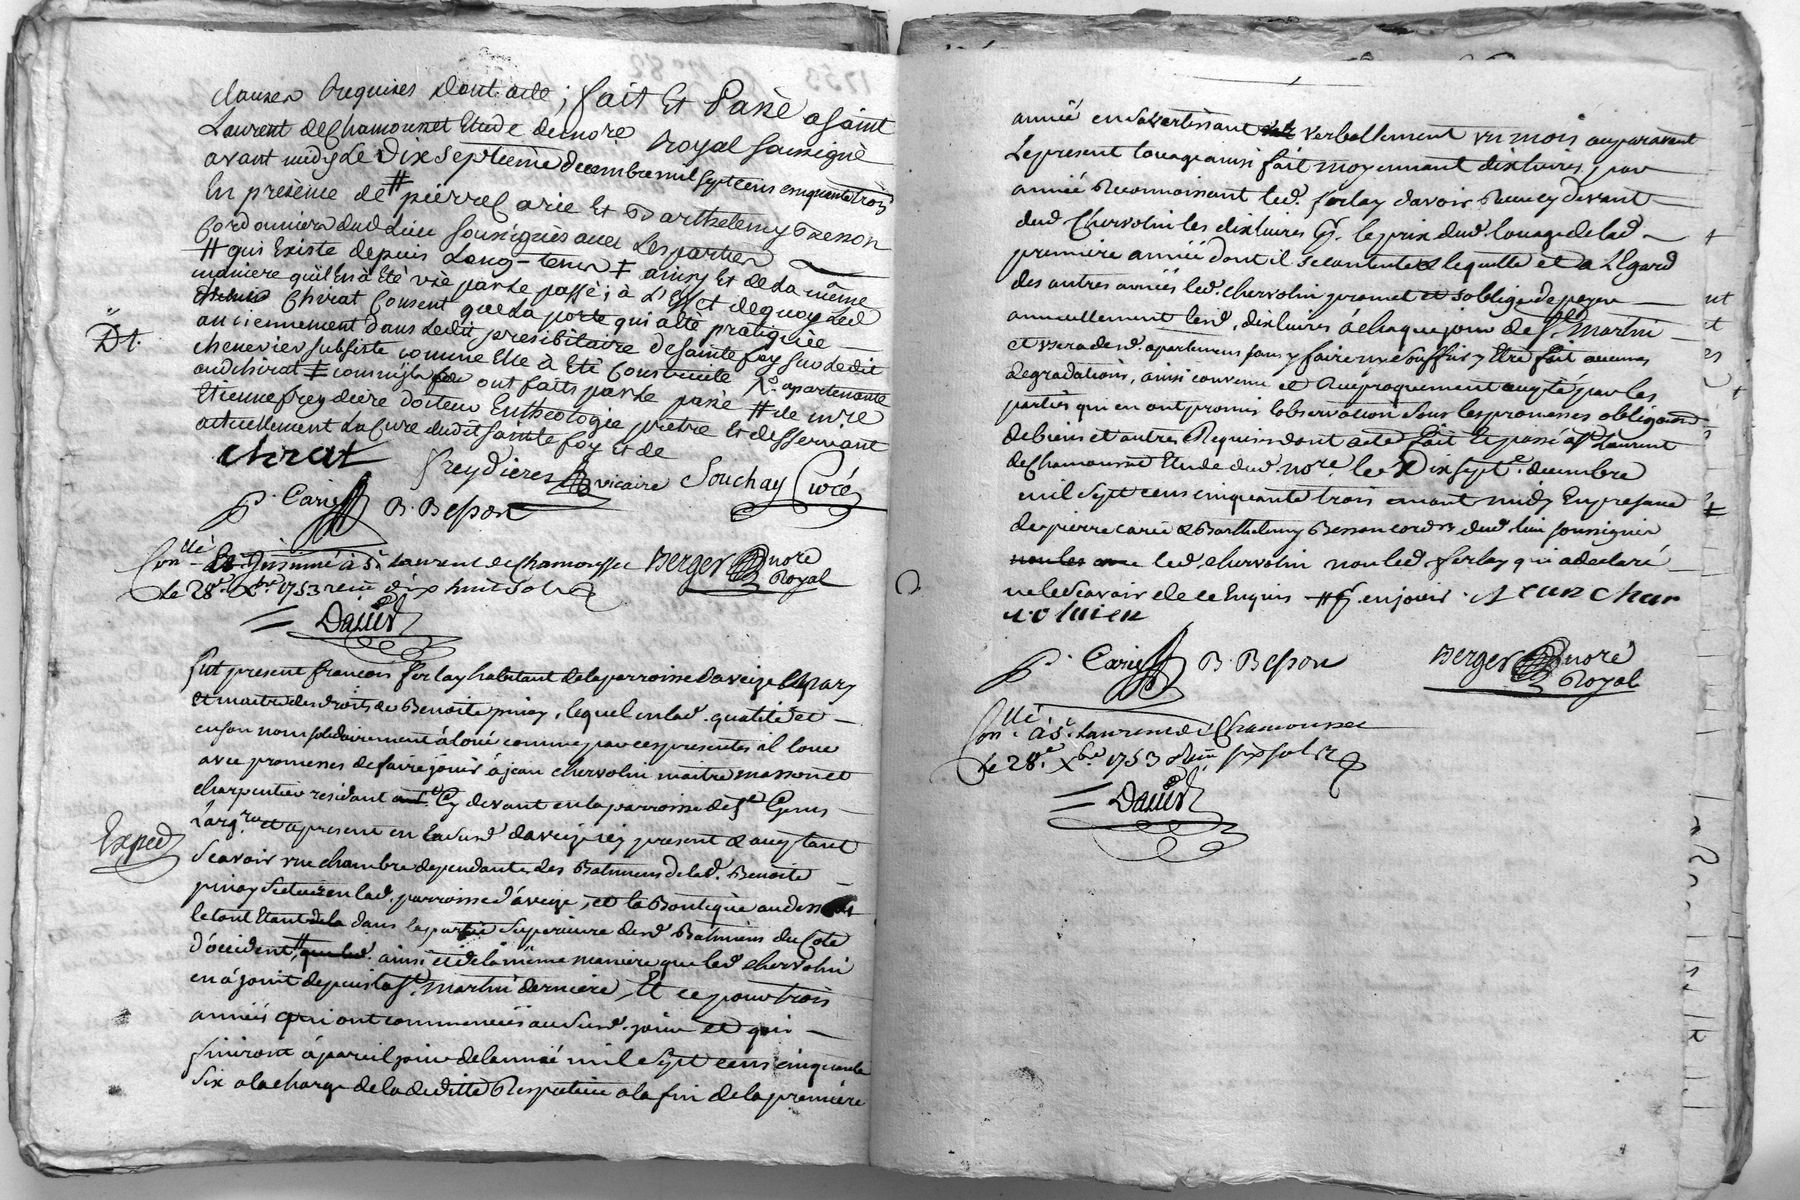 clauses requises dont acte; fait et Passé a Saint
Laurent de Chamousset Etude de nore Royal soussigné
avant midy Le Dix septieme decembre mil sept cens cinquante trois
En presence de # pierre Carié Et Barthelemy Besson
Cordonniers dud. Lieu soussignés avec Les parties
# qui Existe depuis Long-tems ‡ ainsy Et de la même
maniere qu'il En à Eté usé par Le passé; à L'effet de quoy Led.
Chirat Consent que La porte qui a été pratiquée
anciennement dans Ledit presibitaire de Sainte foy sur Ledit
chenevier subsiste comme Elle à Eté Construite
aud. chirat ‡ comme ont faits par Le passé # de mre
Etienne freydière docteur En theologie pretre Et desservant
actuellement La Cure dudit Sainte foy Et de
Dt.
chirat freydieres vicaire Souchay Curé
P. Carié B. Besson
Conllé à St. Laurent de Chamousset Berger nore
Le 28e. Xbre 1753 reçu dix huit sols Royal
Dauier
fut present francois ferlay habitant de la parroisse d'aveize Mary
et maitre des droits de Benoite pinay, lequel en lad. qualité et
en son nom solidairement à loué comme par ces presentes il loue
avec promesses de faire jouir à jean chervolin maitre masson et
charpentier residant cy devant en la parroisse de St. Genis
L'arg.re et apresent en Celle d'aveize icy present & acceptant
Scavoir une chambre dependante des Batimens de lad. Benoite
pinay scituée en lad. parroisse d'aveize, et la Boutique au dessous
le tout Etant dans la partie superieure desd. Batimens du Coté
d'occident, # ainsi et de la même maniere que led. chervolin
en a jouit depuis la St. martin derniere, Et ce pour trois
années qui ont commencées au susd. jour et qui
finiront à pareil jour de l'année mil sept cens cinquante
six a la charge de la deditte Respective a la fin de la première
Exped
année en s'avertissant verballement un mois auparavant
Le present louage ainsi fait moyennant dix livres, par
année Reconnoissant led. ferlay d'avoir Receu cy devant
dud. Chervolin les dix livres pr. le prix dud. louage de lad.
première année dont il se contente & le quitte et a L'Egard
des autres années led. chervolin promet et s'oblige de payer
annuellement lesd. dix livres à chaque jour de St. martin
et usera desd. apartemens sans y faire ny souffrir y Etre fait aucunes
degradations, ainsi convenu et Reciproquement accepté par les
parties qui en ont promis l'observation sous les promesses obligaons
de biens et autres Requises dont acte fait Et passé a St. Laurent
de Chamousset Etude dud. nore. le Dix sept e. decembre
mil sept cens cinquante trois avant midy En presence
de pierre carié & Barthelemy Besson cordrs dud. lieu soussignés
led. chervolin non led. ferlay qui a declaré
ne le scavoir de ce Enquis # pr. en jouir. Jean char
voluien
P. Carié B. Besson Berger nore
Royal
Conllé à St. Laurent de Chamousset
Le 28e. Xbre 1753 Reçu six sols
Dauier